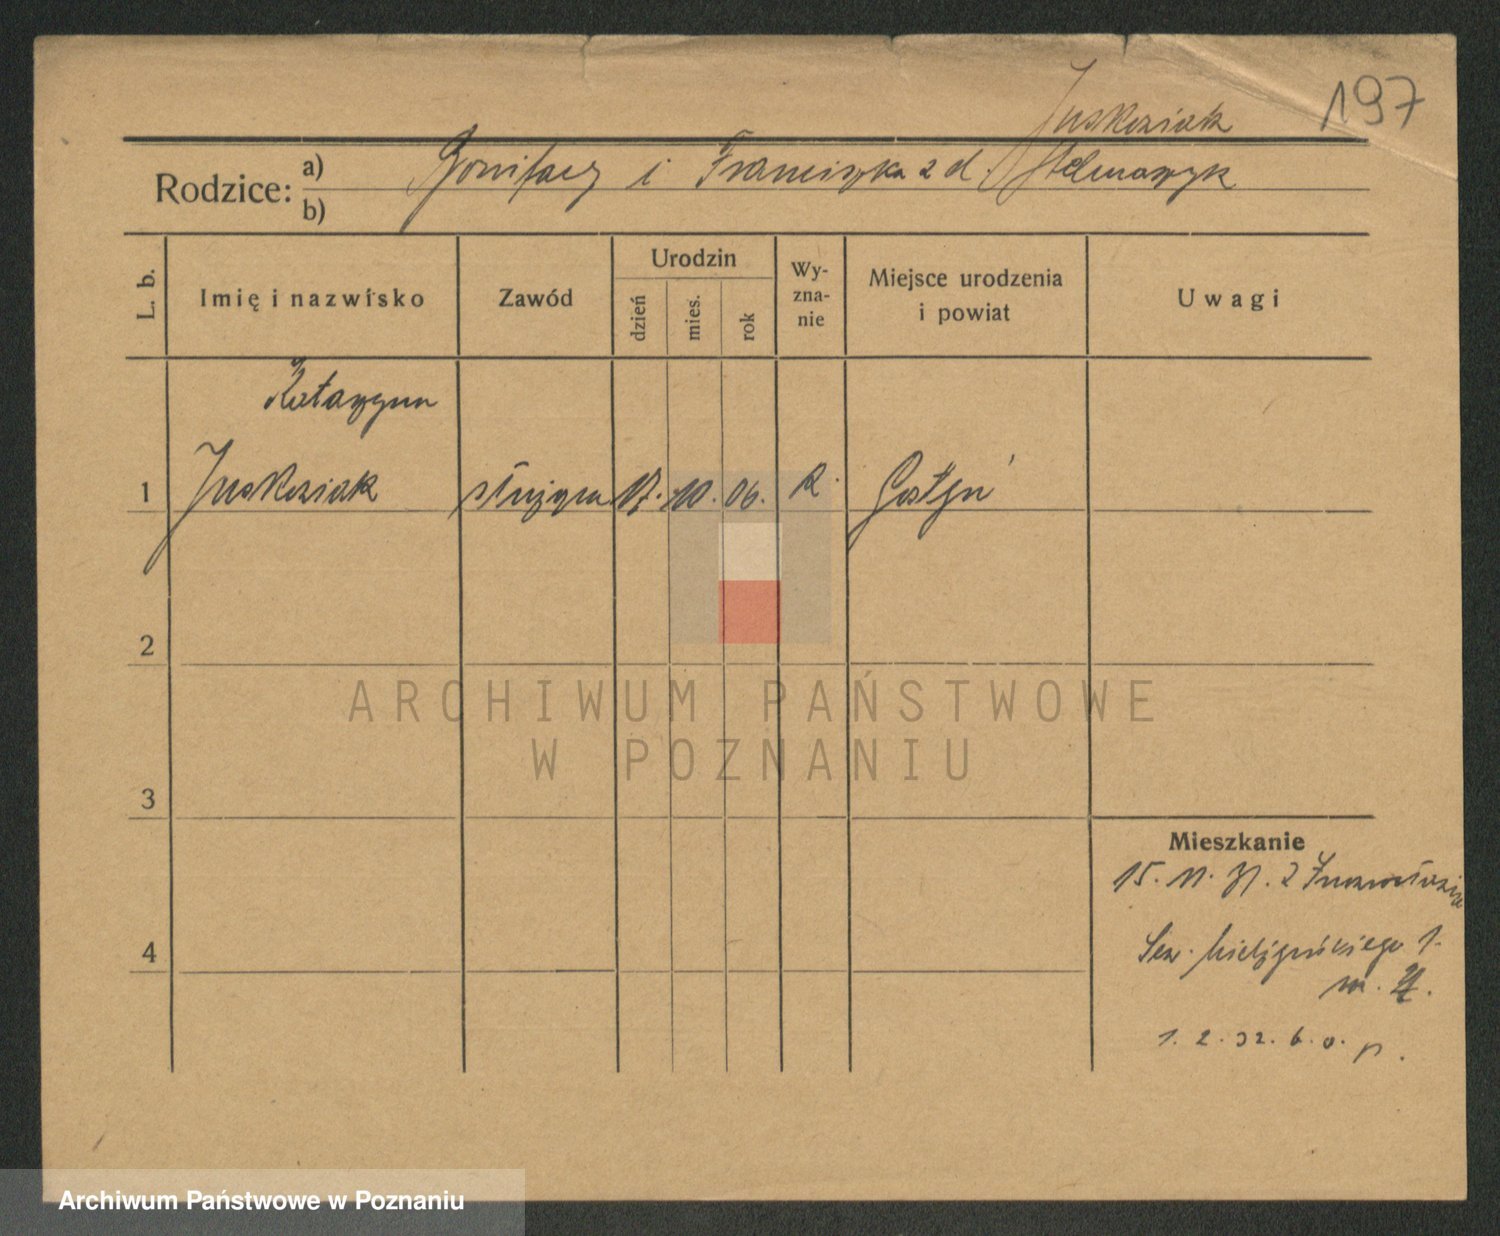 197
Juskowiak
Rodzice: a) Bonifacy i Franciszka z d. Stelmaszyk
b)
L. b.
Imię i nazwisko
Zawód
Urodzin
dzień
mies.
rok
Wy-
zna-
nie
Miejsce urodzenia
i powiat
Uwagi
Katarzyna
1 służąca 17. 10. 06. R.
2
3
4
ARCHIWUM PAŃSTWOWE
W POZNANIU
Mieszkanie
15. 11. 31. z
1.
m.
1. 2. 32. b. o. p.
Archiwum Państwowe w Poznaniu